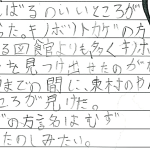 んばるのいいところが
た。キノボリトカゲの方
る図館よりも多くキノボ
を見つけ出せたのがな
までの間に、東村のやん
ころが見けた。
の方言名はむず
たのしみたい。